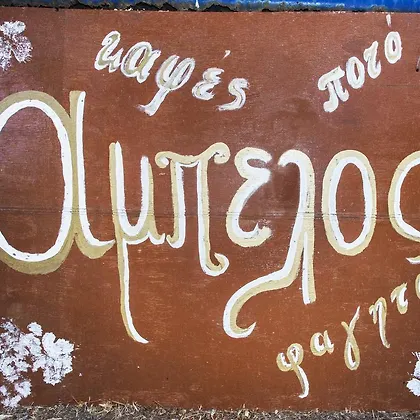 καφές ποτό
αμπελος
φαγητό